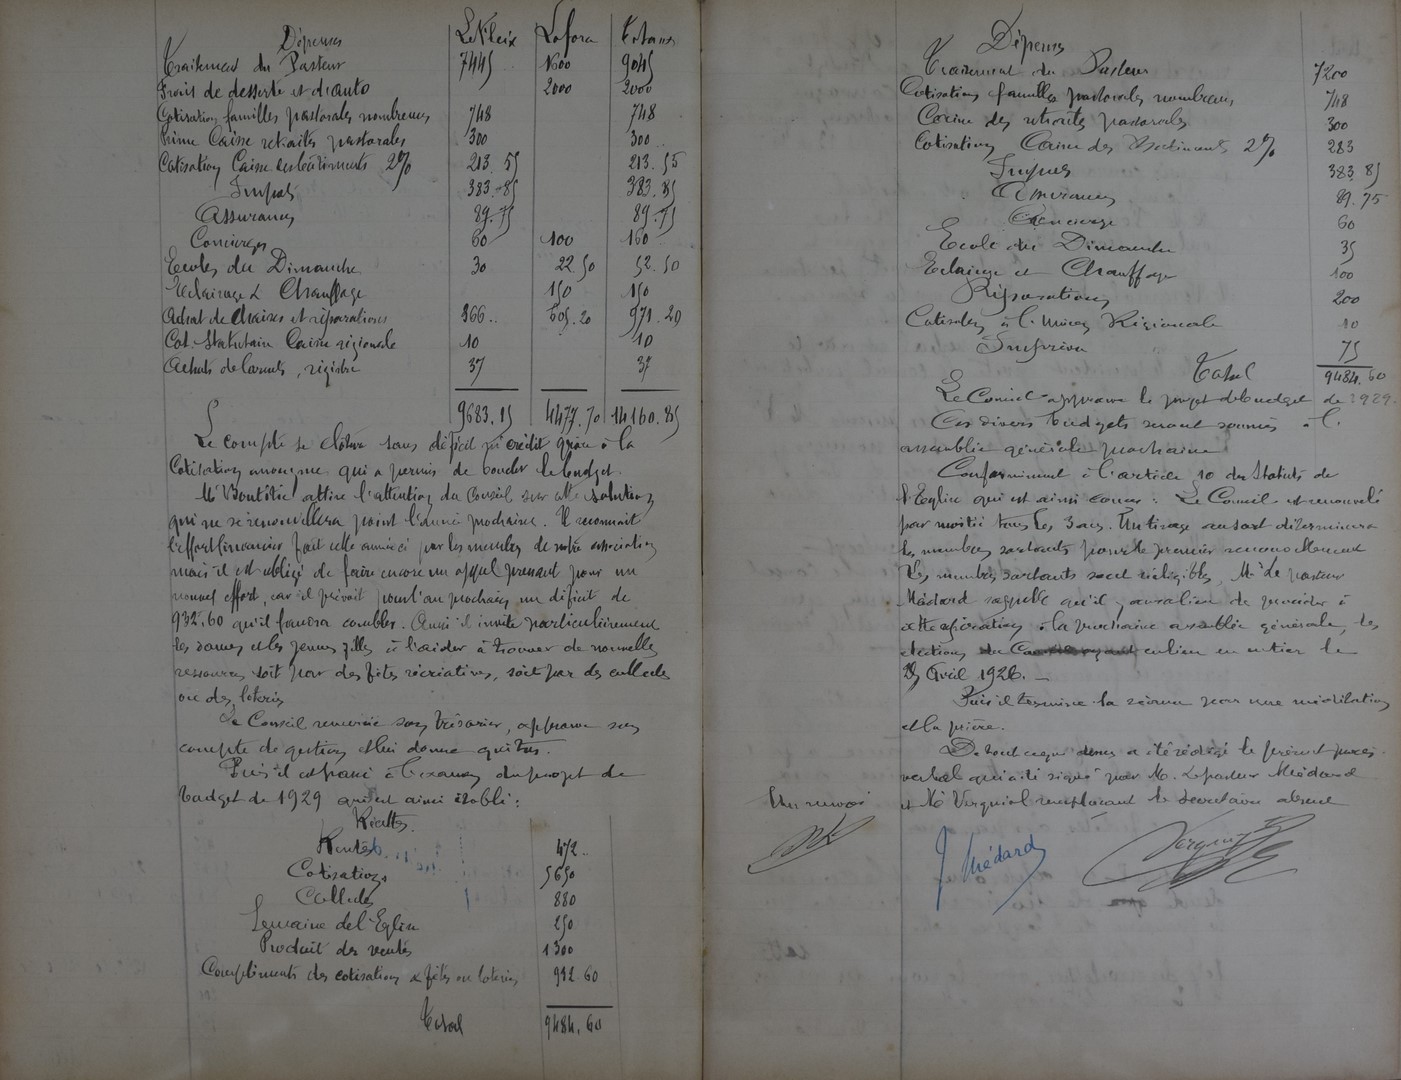 Dépenses Le Fleix Laforce Totaux
Traitement du Pasteur 7445 1600 9045
Frais de desserte et d'auto 2000 2000
Cotisation familles pastorales nombreuses 748 748
Prime Caisse retraites pastorales 300 300
Cotisation Caisse des bâtiments 2% 213.55 213.55
Impôts 383.85 383.85
Assurances 89.75 89.75
Concierges 60 100 160
Ecoles du Dimanche 30 22.50 52.50
Eclairage & Chauffage 150 150
Achat de chaises et réparations 366 605.20 971.20
Cot. Statutaire Caisse régionale 10 10
Achats de carnets, registre 37 37
9683.15 4477.70 14160.85
Le compte se clôture sans déficit ni crédit grâce à la
Cotisation anonyme qui a permis de boucler le budget.
Mr attire l'attention du Conseil sur cette solution
qui ne se renouvellera point l'année prochaine. Il reconnaît
l'effort financier fait cette année ci par les membres de notre association
mais il est obligé de faire encore un appel pressant pour un
nouvel effort, car il prévoit pour l'an prochain un déficit de
932,60 qu'il faudra combler. Aussi il invite particulièrement
les dames et les jeunes filles à l'aider à trouver de nouvelles
ressources soit par des fêtes récréatives, soit par des collectes
ou des loteries
Le Conseil remercie son trésorier, approuve son
compte de gestion et lui donne quitus.
Puis il est passé à l'examen du projet de
budget de 1929 qui est ainsi établi :
Recettes
Rentes 472
Cotisations 5650
Collectes 880
Semaine de l'Eglise 250
Produit des ventes 1300
Compléments des cotisations & fêtes ou loteries 932.60
Total 9484.60
Dépenses
Traitement du Pasteur 7200
Cotisation familles pastorales nombreuses 748
Caisse des retraites pastorales 300
Cotisation Caisse des Bâtiments 2% 283
Impôts 383.85
Assurances 89.75
Concierge 60
Ecole du Dimanche 35
Eclairage et Chauffage 100
Réparations 200
Cotisation à l'Union Régionale 10
Imprévu 75
Total 9484.60
Le Conseil approuve le projet de budget de 1929.
Ces divers budgets seront soumis à l'
assemblée générale prochaine.
Conformément à l'article 10 des Statuts de
l'Eglise qui est ainsi conçu : Le Conseil est renouvelé
par moitié tous les 3 ans. Un tirage au sort déterminera
les membres sortants pour le premier renouvellement
Les membres sortants sont rééligibles, Mr le pasteur
Médard rappelle qu'il y aura lieu de procéder à
cette opération à la prochaine assemblée générale, les
élections eu lieu en entier le
25 Avril 1926. —
Puis il termine la séance par une méditation
et la prière.
De tout ce que dessus a été rédigé le présent procès-
verbal qui a été signé par M. le pasteur Médard
et Mr Vergniol remplaçant le Secrétaire absent
Un renvoi
J Médard
Vergniol